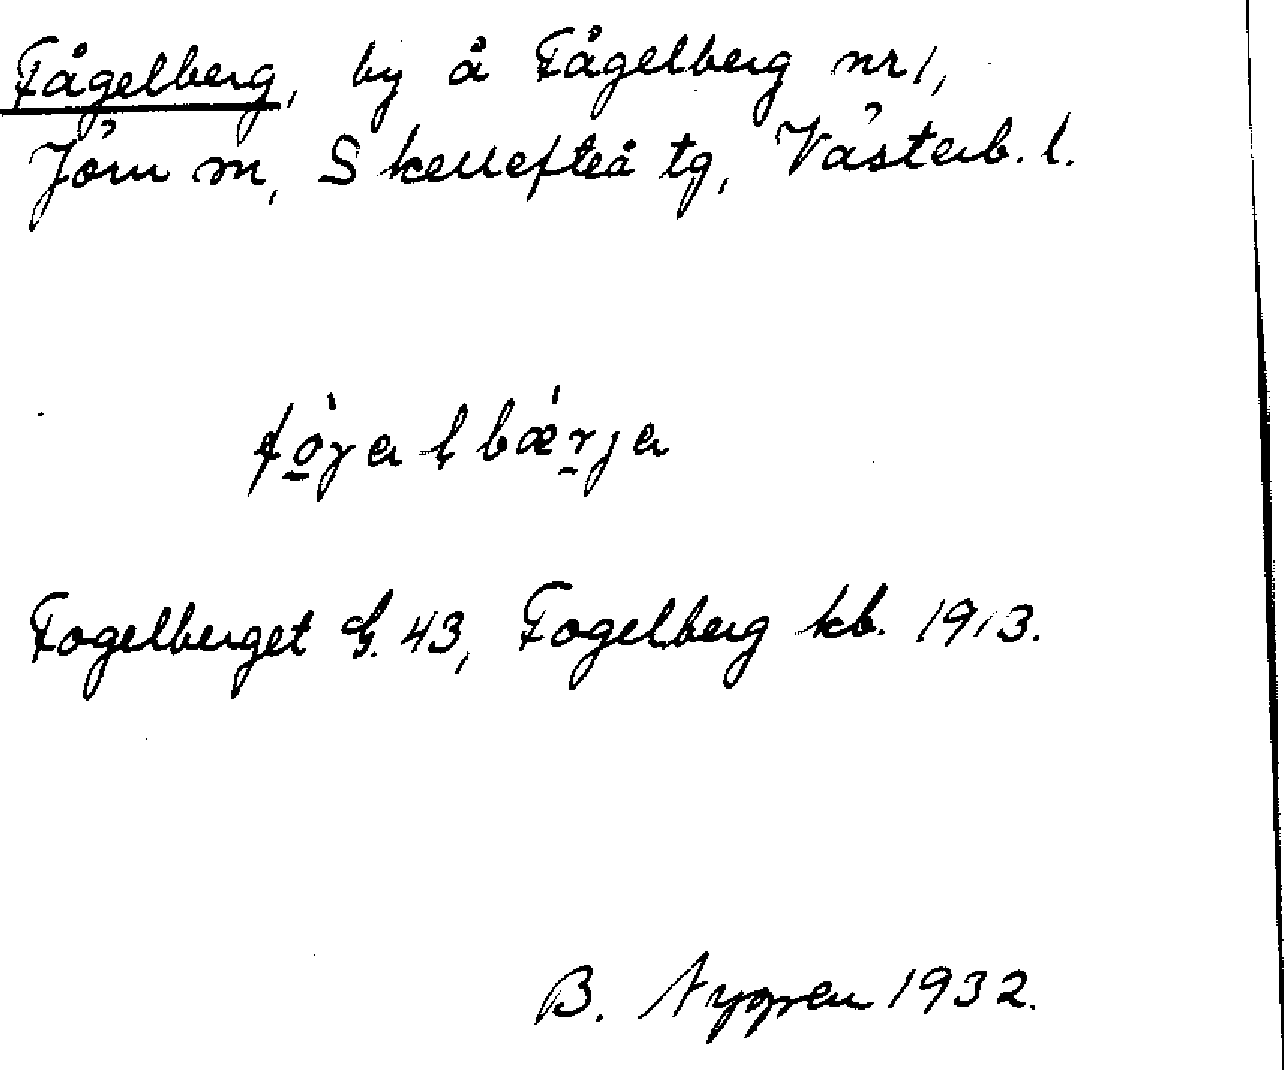 Fågelberg, by å Fågelberg nr 1,
Jörn sn, Skellefteå tg, Västerb. l.
fò̠γal bǽrja
Fogelberget G. 43, Fogelberg kb. 1913.
B. Nygren 1932.